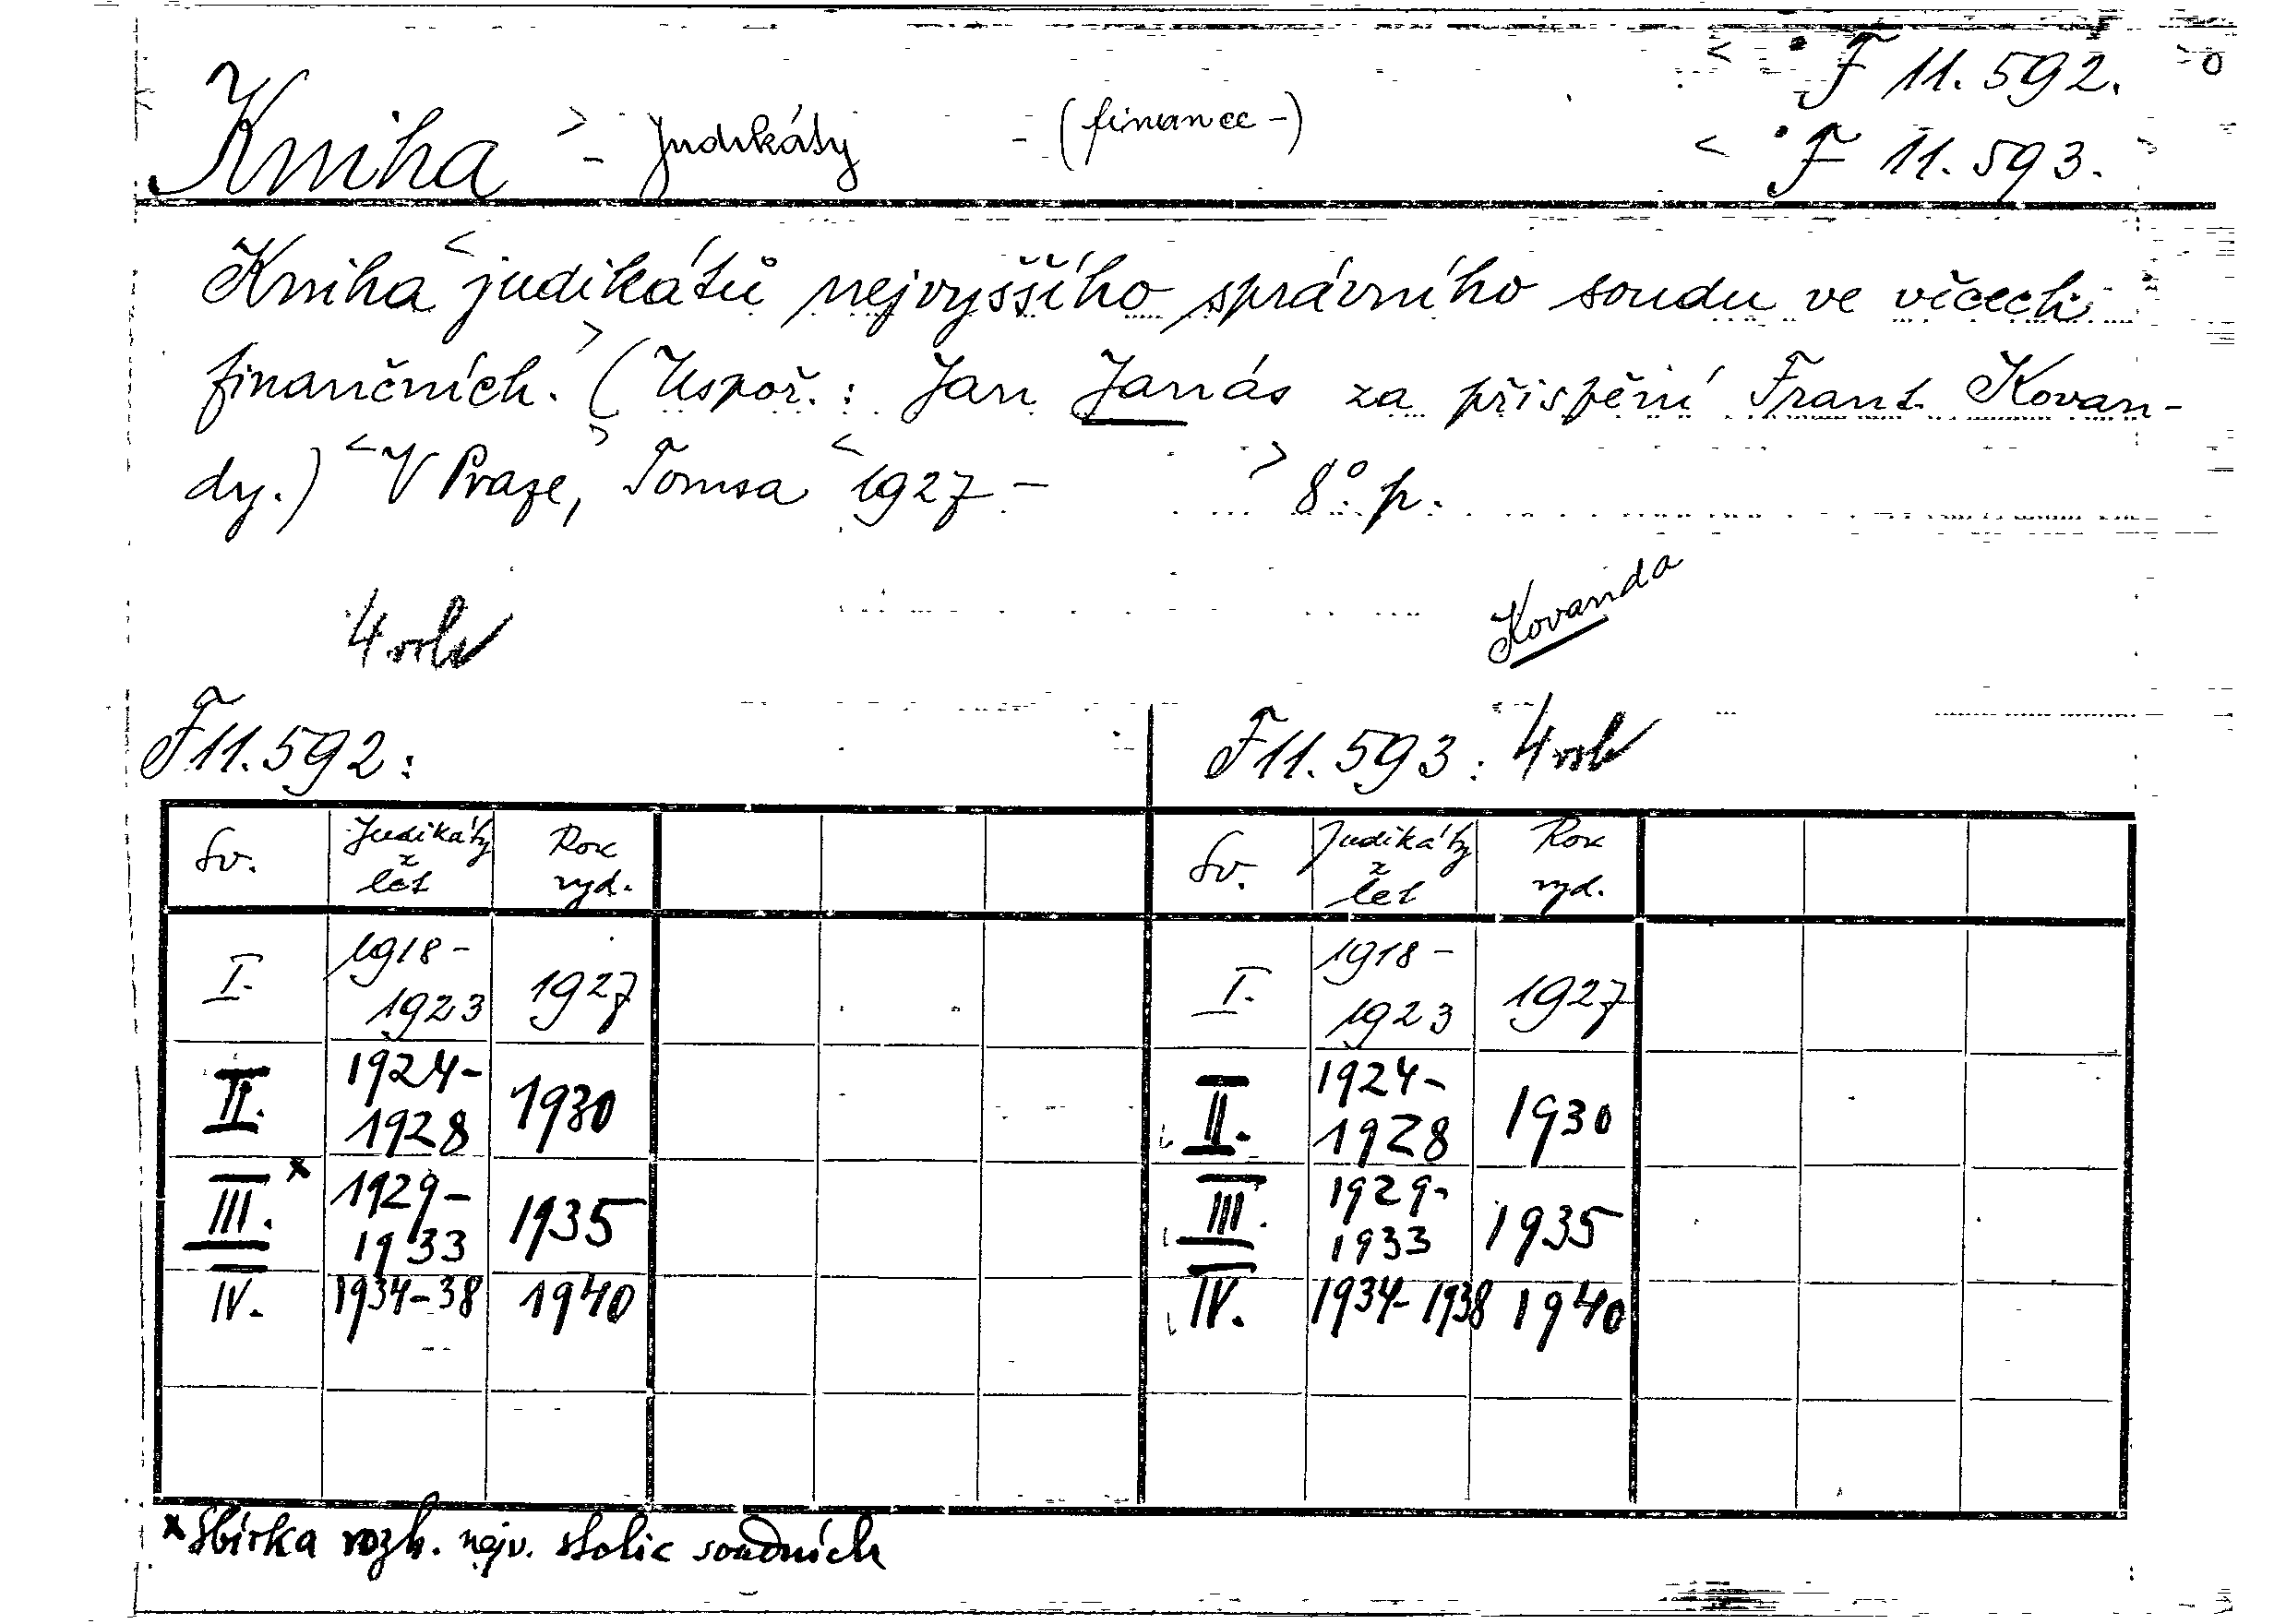 Kniha - judikáty - (finance-)
F 11.592.
F 11.593.
Kniha judikátů nejvyššího správního soudu ve věcech
finančních. (Uspoř.: Jan Janás za přispění Frant. Kovan-
dy.) V Praze, Tomsa 1927 - 8° p.
Kovanda
4 vol
F 11.592:
F 11.593: 4 vol
Sv. Judikáty z let Rok vyd. Sv. Judikáty z let Rok vyd.
I. 1918-1923 1927 I. 1918-1923 1927
II. 1924-1928 1930 II. 1924-1928 1930
III. x 1929-1933 1935 III. 1929-1933 1935
IV. 1934-38 1940 IV. 1934-1938 1940
x Sbírka rozh. nejv. stolic soudních